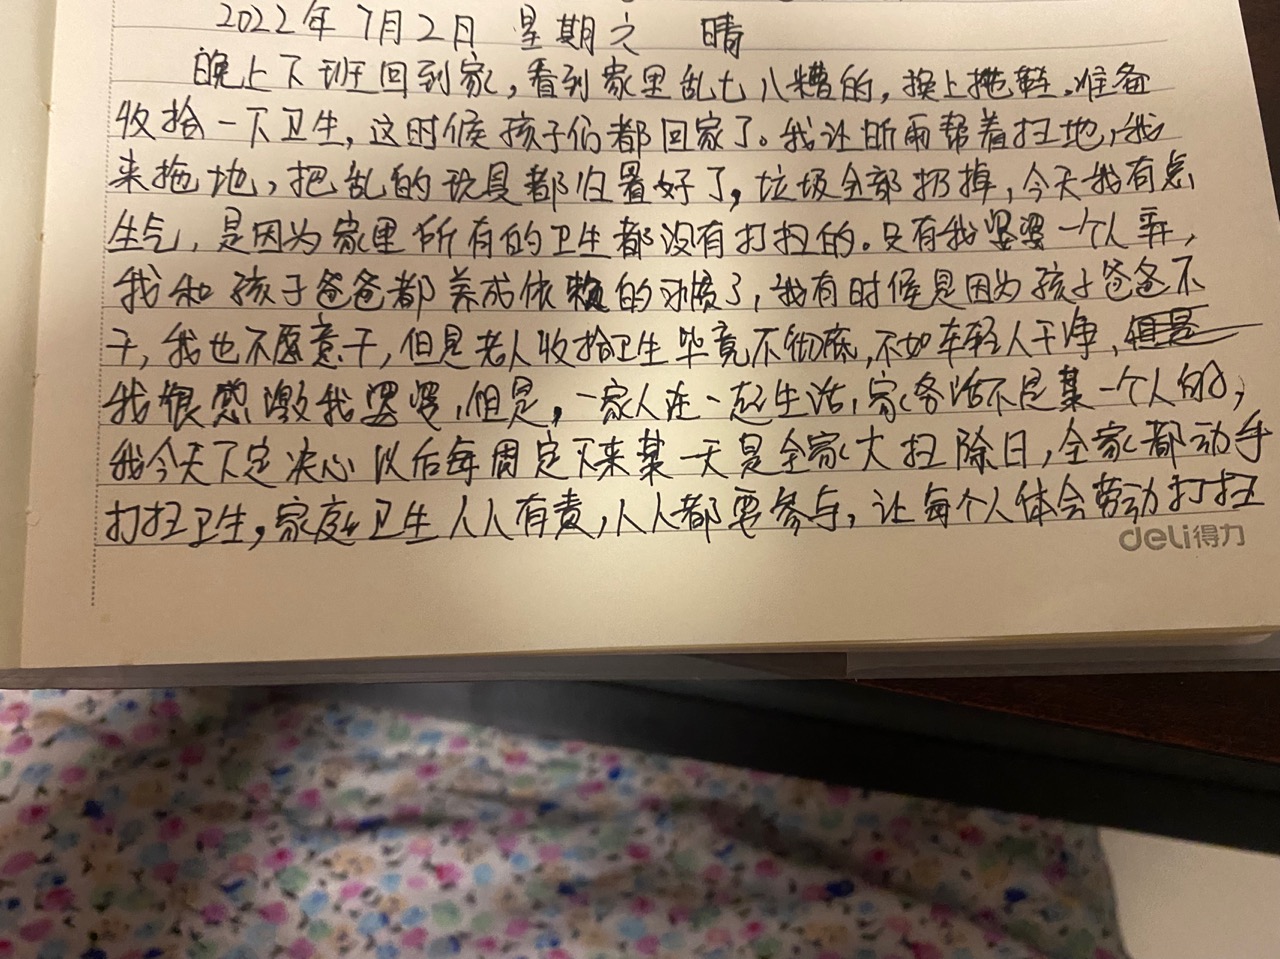 2022年7月2日 星期六 晴
晚上下班回到家，看到家里乱七八糟的，换上拖鞋。准备
收拾一下卫生，这时候孩子们都回家了。我让昕雨帮着扫地，我
来拖地，把乱的玩具都归置好了，垃圾全部扔掉，今天我有点
生气，是因为家里所有的卫生都没有打扫的。只有我婆婆一个人弄，
我和孩子爸爸都养成依赖的习惯了，我有时候是因为孩子爸爸不
干，我也不愿意干，但是老人收拾卫生毕竟不彻底，不如年轻人干净，
我很感激我婆婆，但是，一家人在一起生活，家务活不是某一个人的，
我今天下定决心以后每周定下来某一天是全家大扫除日，全家都动手
打扫卫生，家庭卫生人人有责，人人都要参与，让每个人体会劳动打扫
deli得力